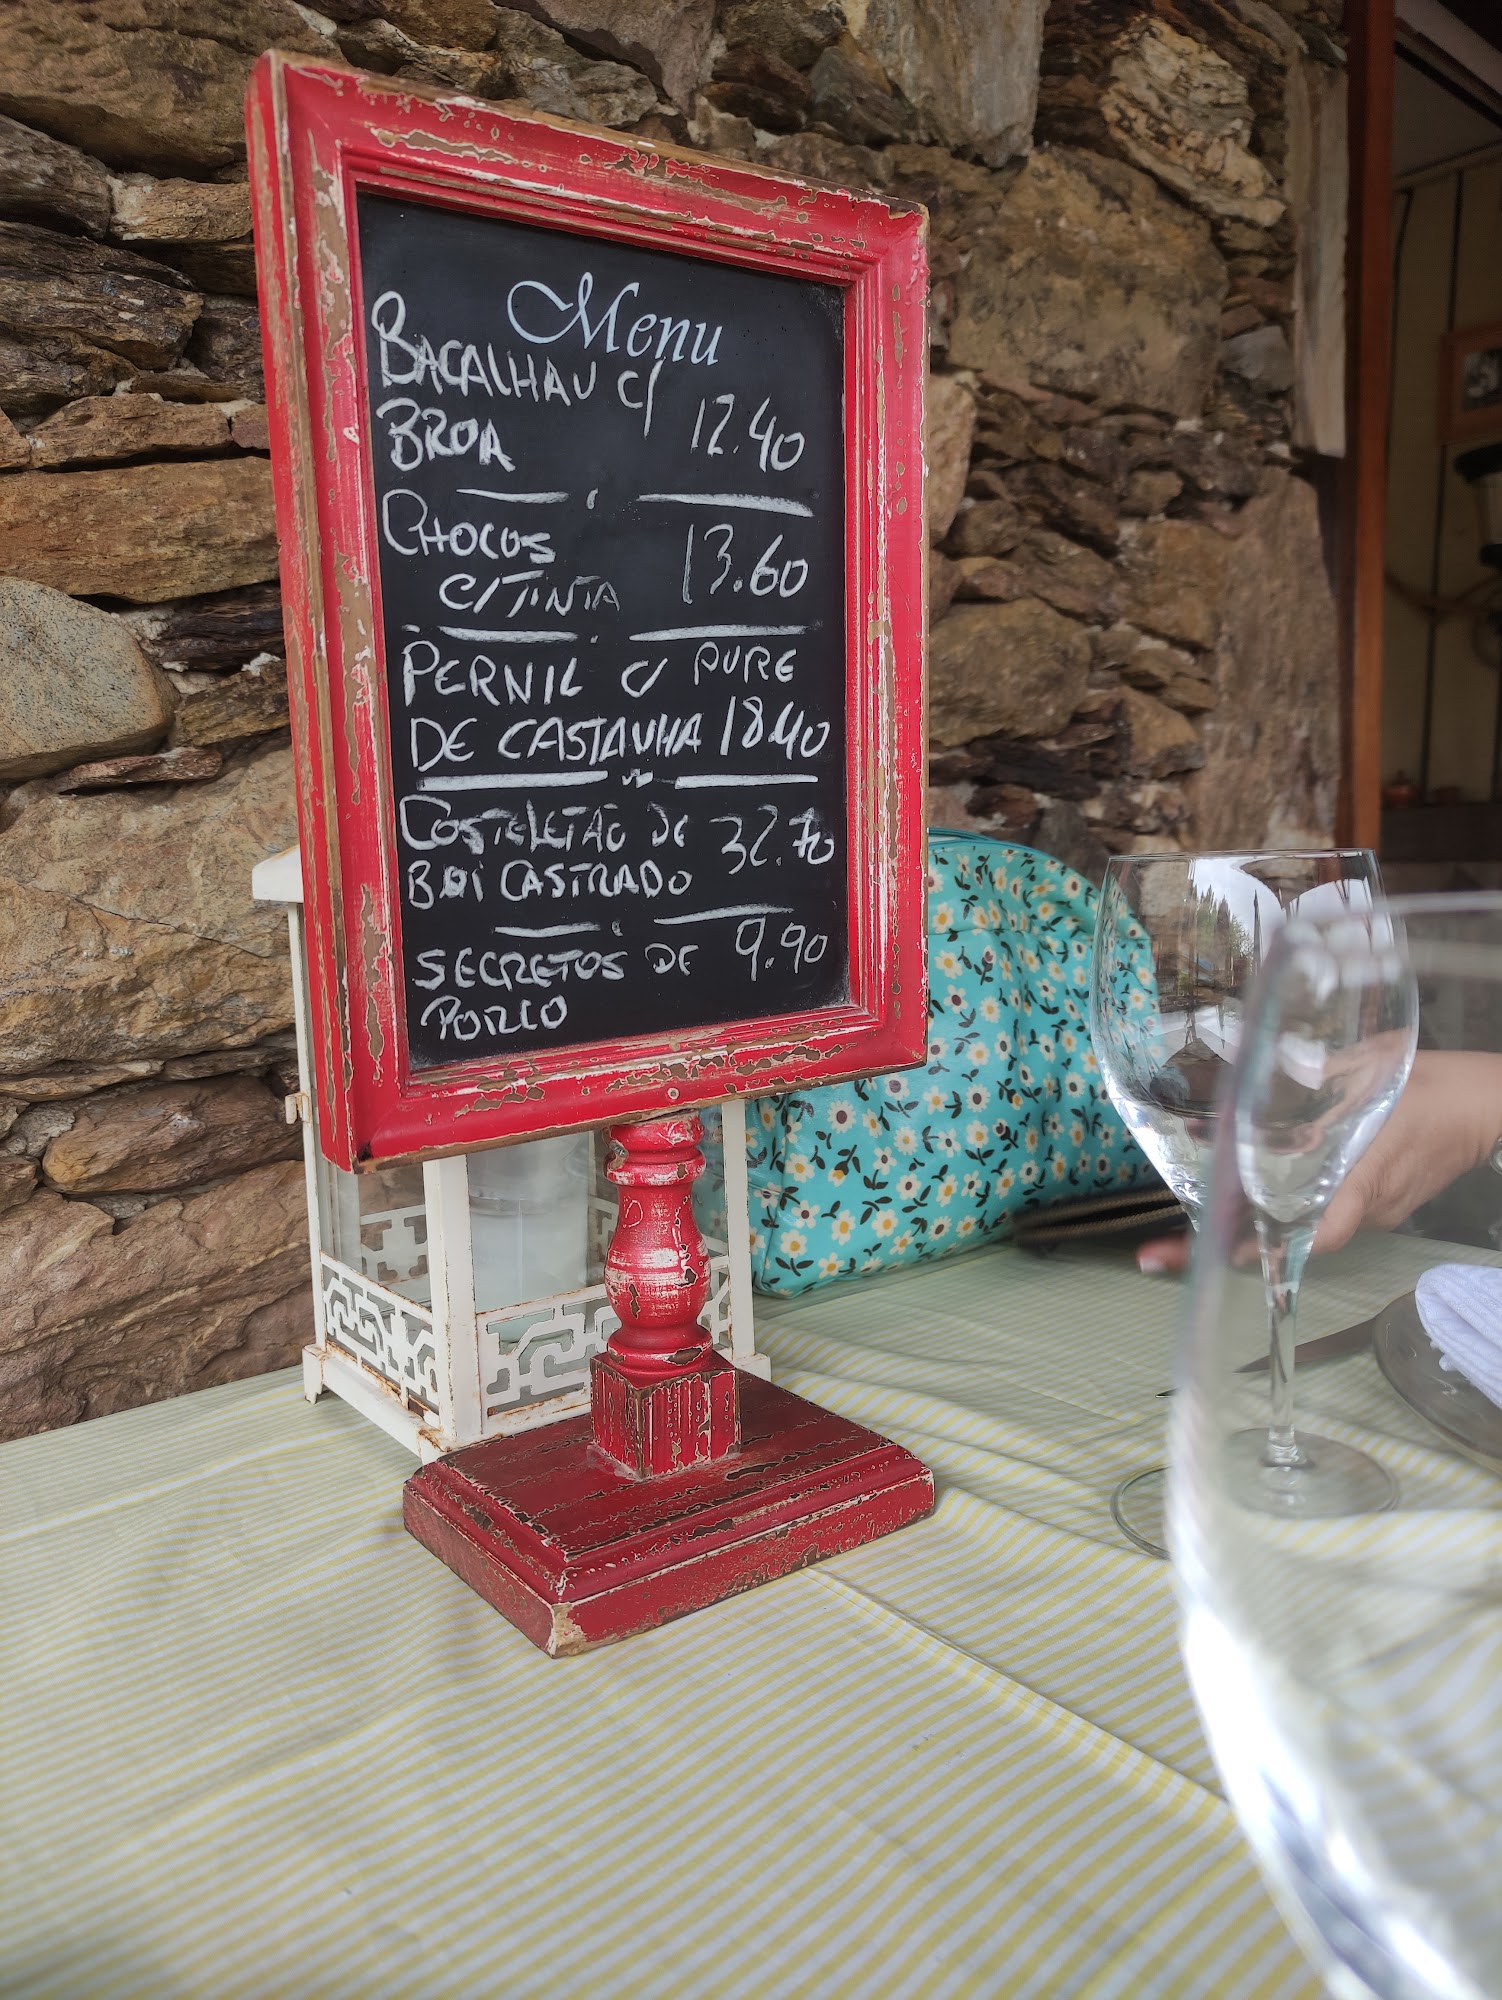 Menu
BACALHAU C/
BROA 12.40
CHOCOS
C/TINTA 13.60
PERNIL C/ PURE
DE CASTANHA 18.40
COSTELETÃO DE
BOI CASTRADO 32.70
SECRETOS DE 9.90
PORCO